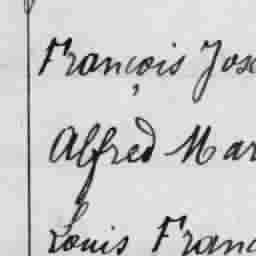 François Jose
Alfred Mar
Louis Franc